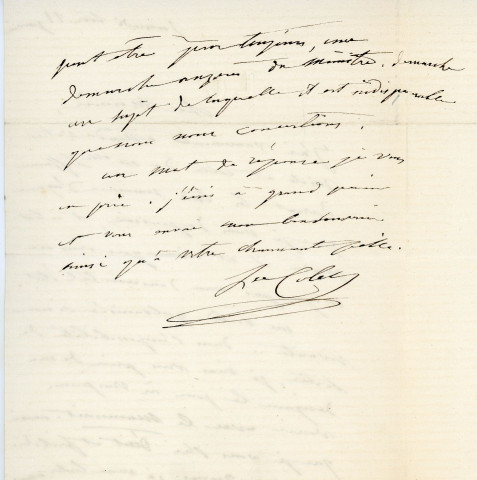 peut être pour toujours, une
demarche auprès du ministre. demarche
au sujet de laquelle il est indispensable
que nous nous concertions.
un mot de réponse je vous
en prie. j'écris à grand peine
et vous envoie mon
ainsi qu'à votre charmante fille.
Colet